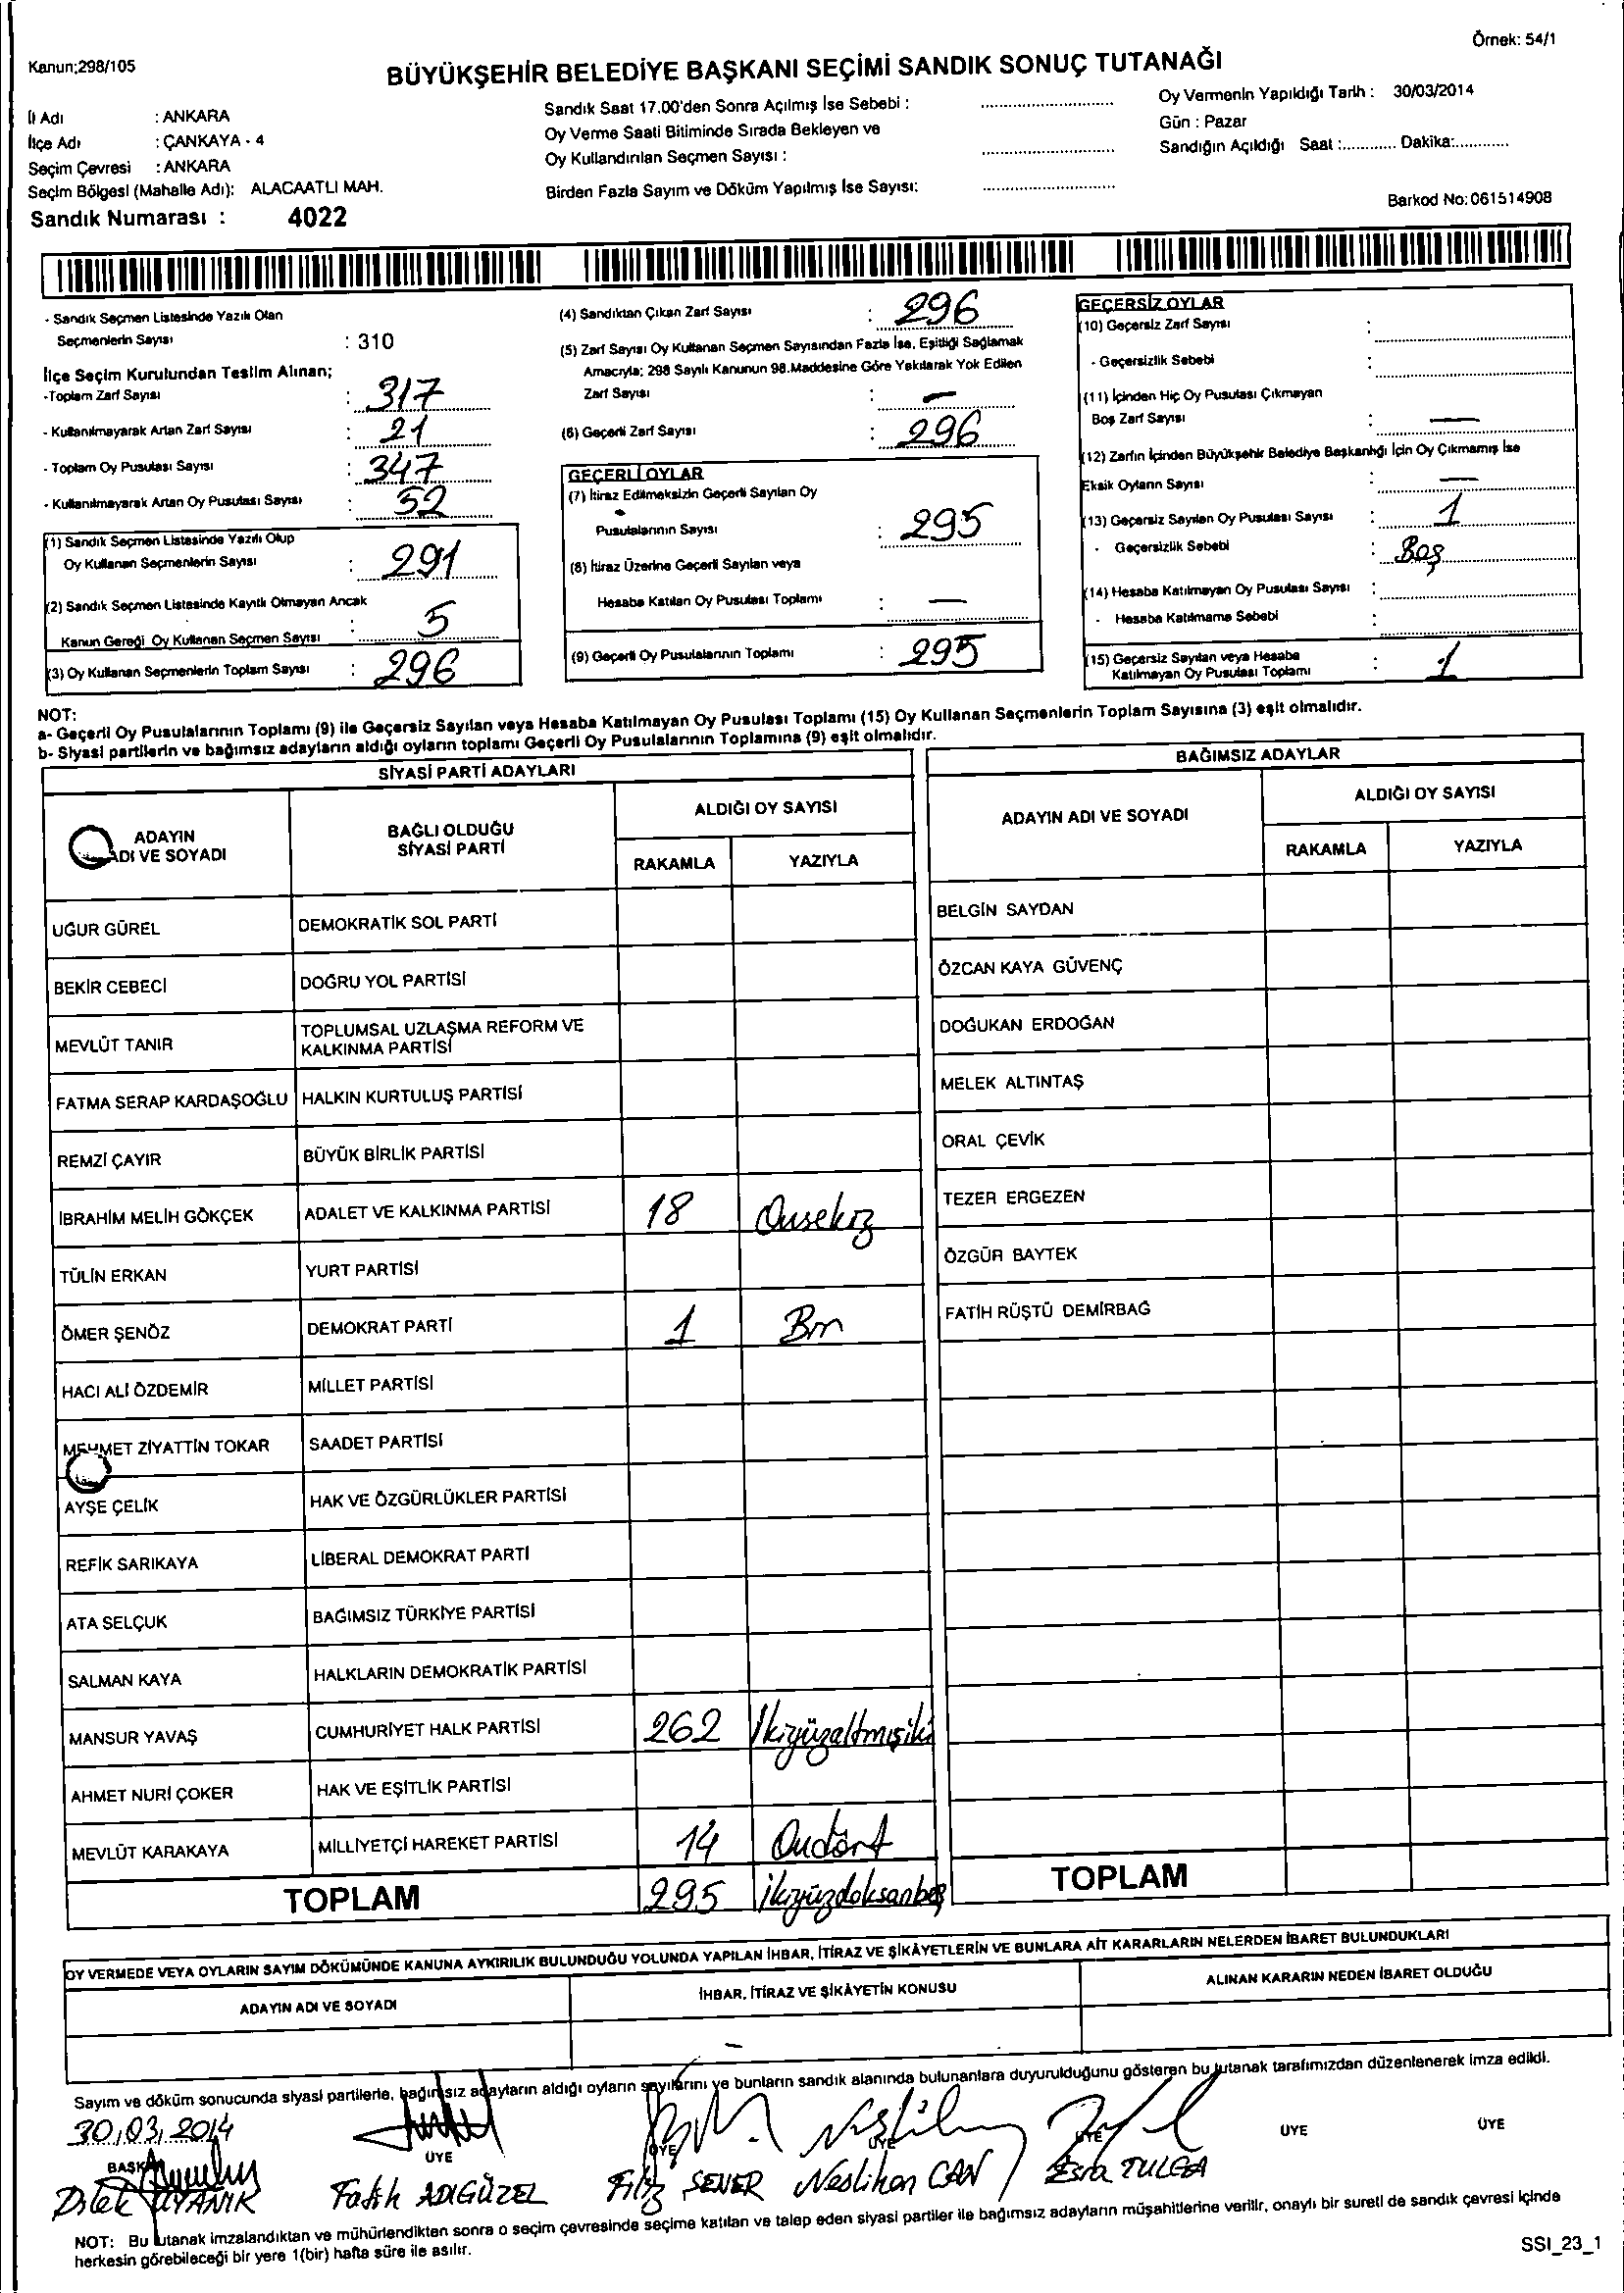 Örnek: 54/1
Kanun;298/105
BÜYÜKŞEHİR BELEDİYE BAŞKANI SEÇİMİ SANDIK SONUÇ TUTANAĞI
İl Adı : ANKARA
İlçe Adı : ÇANKAYA - 4
Seçim Çevresi : ANKARA
Seçim Bölgesi (Mahalle Adı): ALACAATLI MAH.
Sandık Numarası : 4022
Sandık Saat 17.00'den Sonra Açılmış İse Sebebi :
Oy Verme Saati Bitiminde Sırada Bekleyen ve
Oy Kullandırılan Seçmen Sayısı :
Birden Fazla Sayım ve Döküm Yapılmış İse Sayısı:
Oy Vermenin Yapıldığı Tarih : 30/03/2014
Gün : Pazar
Sandığın Açıldığı Saat :............ Dakika:............
Barkod No:061514908
- Sandık Seçmen Listesinde Yazılı Olan
Seçmenlerin Sayısı : 310
İlçe Seçim Kurulundan Teslim Alınan;
-Toplam Zarf Sayısı : 317
- Kullanılmayarak Artan Zarf Sayısı : 21
- Toplam Oy Pusulası Sayısı : 347
- Kullanılmayarak Artan Oy Pusulası Sayısı : 52
(1) Sandık Seçmen Listesinde Yazılı Olup
Oy Kullanan Seçmenlerin Sayısı : 291
(2) Sandık Seçmen Listesinde Kayıtlı Olmayan Ancak
Kanun Gereği Oy Kullanan Seçmen Sayısı : 5
(3) Oy Kullanan Seçmenlerin Toplam Sayısı : 296
(4) Sandıktan Çıkan Zarf Sayısı : 296
(5) Zarf Sayısı Oy Kullanan Seçmen Sayısından Fazla İse, Eşitliği Sağlamak
Amacıyla; 298 Sayılı Kanunun 98.Maddesine Göre Yakılarak Yok Edilen
Zarf Sayısı : —
(6) Geçerli Zarf Sayısı : 296
GEÇERLİ OYLAR
(7) İtiraz Edilmeksizin Geçerli Sayılan Oy
Pusulalarının Sayısı : 295
(8) İtiraz Üzerine Geçerli Sayılan veya
Hesaba Katılan Oy Pusulası Toplamı : —
(9) Geçerli Oy Pusulalarının Toplamı : 295
GEÇERSİZ OYLAR
(10) Geçersiz Zarf Sayısı :
- Geçersizlik Sebebi :
(11) İçinden Hiç Oy Pusulası Çıkmayan
Boş Zarf Sayısı : —
(12) Zarfın İçinden Büyükşehir Belediye Başkanlığı İçin Oy Çıkmamış İse
Eksik Oyların Sayısı : —
(13) Geçersiz Sayılan Oy Pusulası Sayısı : 1
- Geçersizlik Sebebi : Boş
(14) Hesaba Katılmayan Oy Pusulası Sayısı :
- Hesaba Katılmama Sebebi :
(15) Geçersiz Sayılan veya Hesaba
Katılmayan Oy Pusulası Toplamı : 1
NOT:
a- Geçerli Oy Pusulalarının Toplamı (9) ile Geçersiz Sayılan veya Hesaba Katılmayan Oy Pusulası Toplamı (15) Oy Kullanan Seçmenlerin Toplam Sayısına (3) eşit olmalıdır.
b- Siyasi partilerin ve bağımsız adayların aldığı oyların toplamı Geçerli Oy Pusulalarının Toplamına (9) eşit olmalıdır.
SİYASİ PARTİ ADAYLARI
ADAYIN ADI VE SOYADI
BAĞLI OLDUĞU SİYASİ PARTİ
ALDIĞI OY SAYISI
RAKAMLA YAZIYLA
UĞUR GÜREL DEMOKRATİK SOL PARTİ
BEKİR CEBECİ DOĞRU YOL PARTİSİ
MEVLÜT TANIR TOPLUMSAL UZLAŞMA REFORM VE KALKINMA PARTİSİ
FATMA SERAP KARDAŞOĞLU HALKIN KURTULUŞ PARTİSİ
REMZİ ÇAYIR BÜYÜK BİRLİK PARTİSİ
İBRAHİM MELİH GÖKÇEK ADALET VE KALKINMA PARTİSİ 18 Onsekiz
TÜLİN ERKAN YURT PARTİSİ
ÖMER ŞENÖZ DEMOKRAT PARTİ 1 Bir
HACI ALİ ÖZDEMİR MİLLET PARTİSİ
MEHMET ZİYATTİN TOKAR SAADET PARTİSİ
AYŞE ÇELİK HAK VE ÖZGÜRLÜKLER PARTİSİ
REFİK SARIKAYA LİBERAL DEMOKRAT PARTİ
ATA SELÇUK BAĞIMSIZ TÜRKİYE PARTİSİ
SALMAN KAYA HALKLARIN DEMOKRATİK PARTİSİ
MANSUR YAVAŞ CUMHURİYET HALK PARTİSİ 262 İkiyüzaltmışiki
AHMET NURİ ÇOKER HAK VE EŞİTLİK PARTİSİ
MEVLÜT KARAKAYA MİLLİYETÇİ HAREKET PARTİSİ 14 Ondört
TOPLAM 295 İkiyüzdoksanbeş
BAĞIMSIZ ADAYLAR
ADAYIN ADI VE SOYADI
ALDIĞI OY SAYISI
RAKAMLA YAZIYLA
BELGİN SAYDAN
ÖZCAN KAYA GÜVENÇ
DOĞUKAN ERDOĞAN
MELEK ALTINTAŞ
ORAL ÇEVİK
TEZER ERGEZEN
ÖZGÜR BAYTEK
FATİH RÜŞTÜ DEMİRBAĞ
TOPLAM
OY VERMEDE VEYA OYLARIN SAYIM DÖKÜMÜNDE KANUNA AYKIRILIK BULUNDUĞU YOLUNDA YAPILAN İHBAR, İTİRAZ VE ŞİKÂYETLERİN VE BUNLARA AİT KARARLARIN NELERDEN İBARET BULUNDUKLARI
ADAYIN ADI VE SOYADI
İHBAR, İTİRAZ VE ŞİKÂYETİN KONUSU
ALINAN KARARIN NEDEN İBARET OLDUĞU
Sayım ve döküm sonucunda siyasi partilerle, bağımsız adayların aldığı oyların sayılarını ve bunların sandık alanında bulunanlara duyurulduğunu gösteren bu tutanak tarafımızdan düzenlenerek imza edildi.
30.03.2014
BAŞKAN ÜYE ÜYE ÜYE ÜYE ÜYE ÜYE
Dilek UYANIK Fatih ADIGÜZEL Filiz ŞENER Neslihan CAN Esra TULGA
NOT: Bu tutanak imzalandıktan ve mühürlendikten sonra o seçim çevresinde seçime katılan ve talep eden siyasi partiler ile bağımsız adayların müşahitlerine verilir, onaylı bir sureti de sandık çevresi içinde
herkesin görebileceği bir yere 1(bir) hafta süre ile asılır.
SSI_23_1